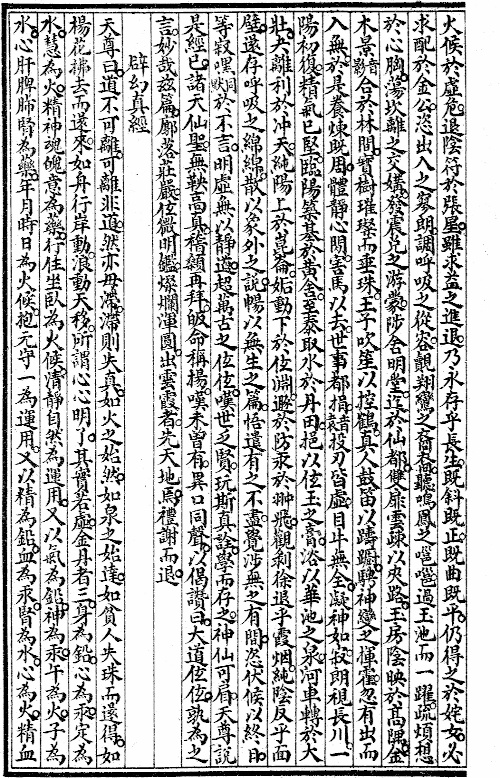 火候於虛危退陰符於張星雖求益之進退乃永存乎長生既斜既正既曲既平仍得之於姹女必
求配於金公恣出入之窈朗調呼吸之從容覩翔鸞之裔裔聽鳴鳳之噰噰過玉池而一躍疏煩想
於心胸蕩坎離之交媾發震兌之游蒙陟含明堂迄於仙都雙扉雲疎以夾路玉房陰映於高隅金
木景影合於林間寶樹璀璨而垂珠王子吹笙以控鶴真人鼓笛以躊躕騁神變之揮霍忽有出而
入無於是養煉既周體靜心閒害馬以去世事都捐音捐投刃皆虛目牛無全凝神如寂朗視長川一
陽初復精氣已堅臨陽築基於黃金至泰取水於丹田挹以玄玉之膏浴以華池之泉河車轉於大
壯夬離利於冲天純陽上於崑崙姤動下於玄淵遯於防汞於翀飛觀剝徐退乎霞烟純陰反乎面
壁遠存呼吸之綿綿散以象外之說暢以無生之篇悟遣有之不盡覺涉無之有間恣伏候以終日
等寂嘿同默於不言明虛無以靜道超萬古之玄玄嘆世之賢玩斯真詮學而存之神仙可肩天尊說
是經已諸天仙聖無鞅高真稽顙再拜皈命稱揚嘆未曾有異口同聲以偈讚曰大道玄玄孰為之
言妙哉茲篇廓落莊嚴玄微明鑑燦爛渾圓出雲霞者先天地焉禮謝而退
辟幻真經
天尊曰道不可離可離非道然亦毋滯滯則失真如火之始然如泉之始達如貧人失珠而還得如
楊花拂去而還來如舟行岸動浪動天移所謂心心明了其實若虛金丹者三身為鉛心為汞定為
水慧為火精神魂魄意為藥行住坐臥為火候清靜自然為運用又以氣為鉛神為汞午為火子為
水心肝脾肺腎為藥年月時日為火候抱元守一為運用又以精為鉛血為汞腎為水心為火精血